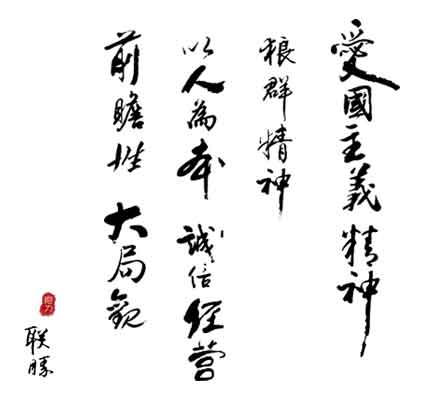 愛國主義精神
狼群精神
以人為本 誠信經營
前瞻性 大局觀
联勝